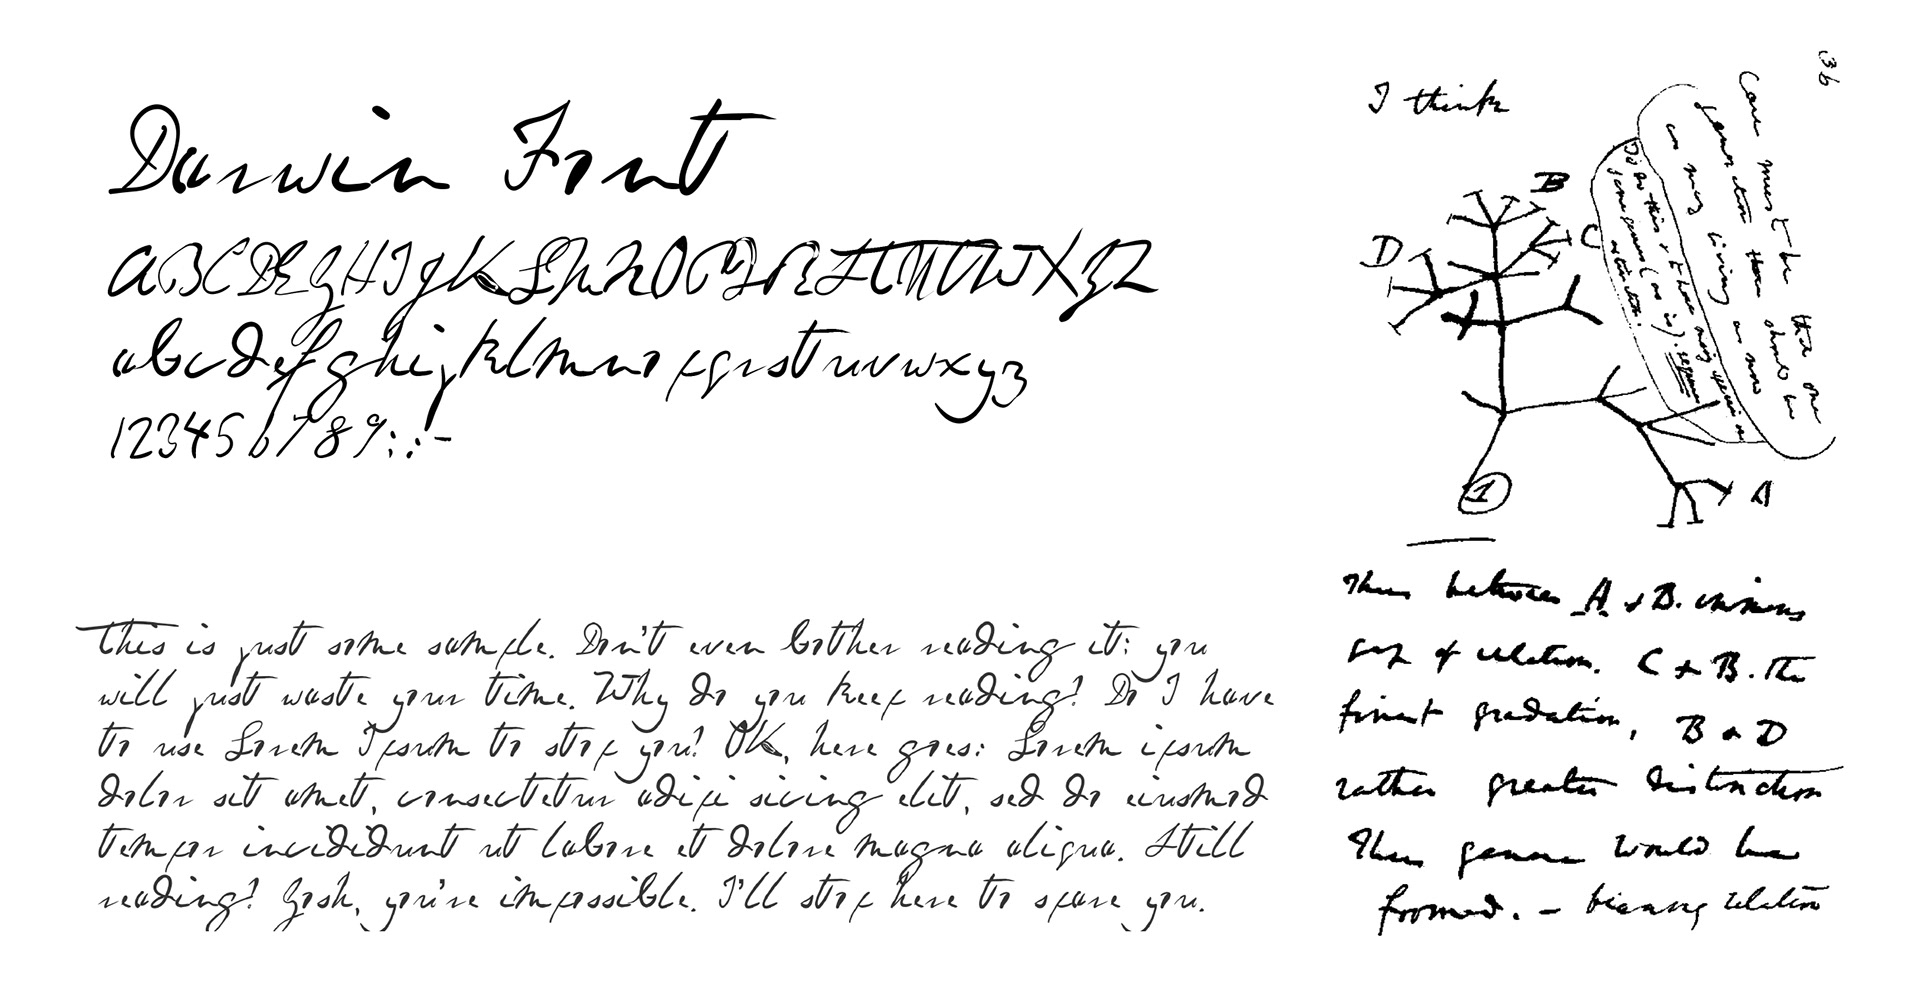 Darwin Font
ABCDEFGHIJKLMNOPQRSTUVWXYZ
abcdefghijklmnopqrstuvwxyz
123456789:;-
This is just some sample. Don't even bother reading it: you
will just waste your time. Why do you keep reading? Do I have
to use Lorem Ipsum to stop you? OK, here goes: Lorem ipsum
dolor sit amet, consectetur adipi sicing elit, sed do eiusmod
tempor incididunt ut labore et dolore magna aliqua. Still
reading? Gosh, you're impossible. I'll stop here to spare you.
36
I think
Case must be that one
generation then should be
as many living as now
To do this & to have many species in
same genus (as is). requires
extinction.
B
C
D
A
1
Thus between A & B. immense
gap of relation. C & B. the
finest gradation, B & D
rather greater distinction
Thus genera would be
formed. — bearing relation